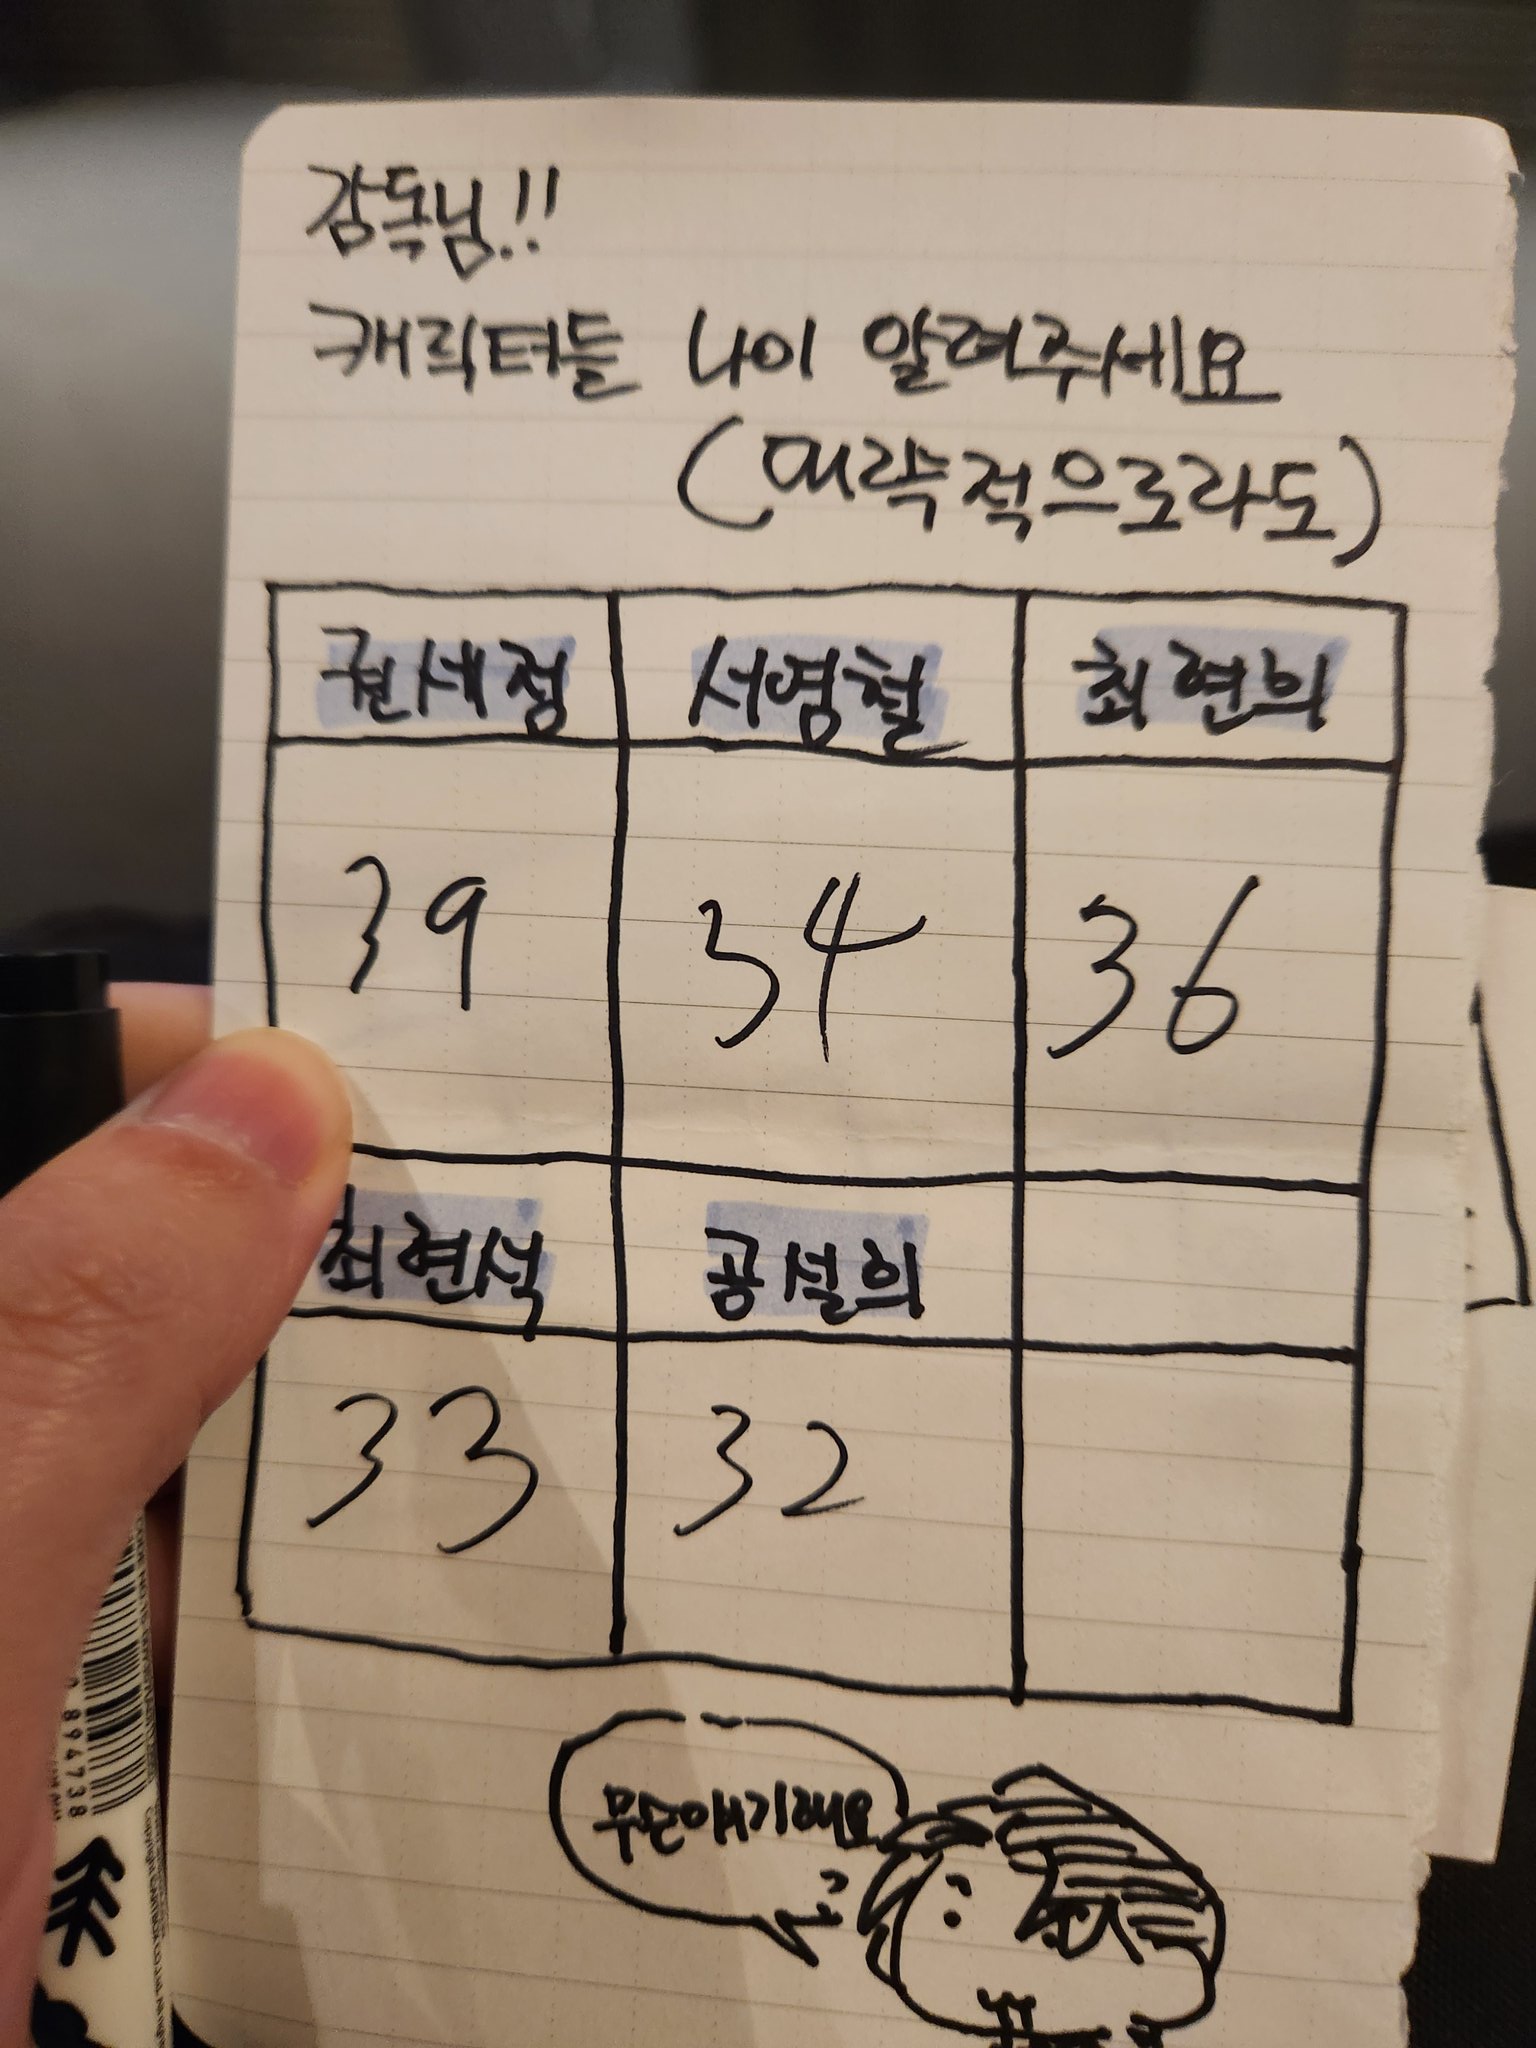 감독님!!
캐릭터들 나이 알려주세요
(대략적으로라도)
권세정 서영철 최현희
39 34 36
최현석 공설희
33 32
무슨얘기해요
894738